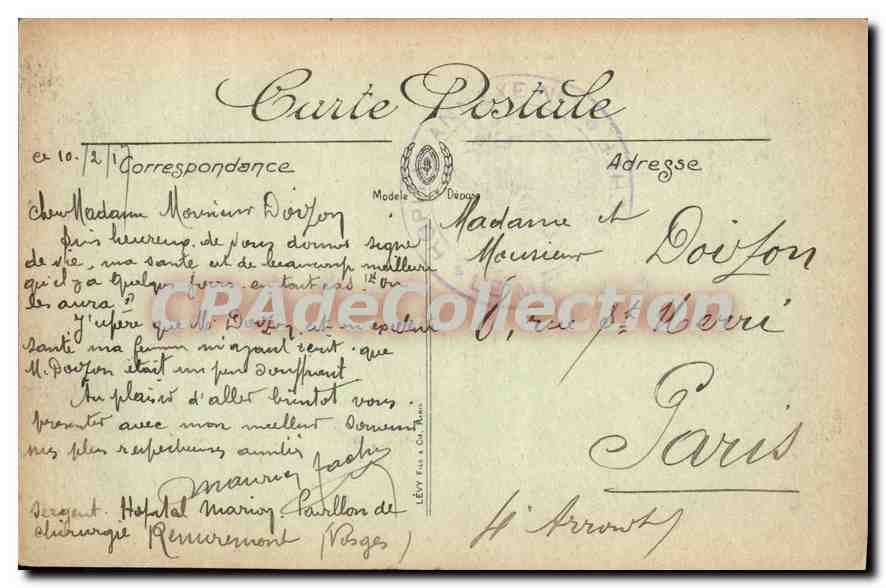 Carte Postale
Ce 10/2/17
Correspondance
Adresse
Modèle Déposé
Cher Madame Monsieur Doizon
suis heureux de vous donner signe
de vie, ma santé est de beaucoup meilleure
qu'il y a quelques jours. en tout cas "on
les aura"
J'espère que Mr Doizon est en excellent
santé ma femme m'ayant écrit que
M. Doizon était un peu souffrant
Au plaisir d'aller bientôt vous
présenter avec mon meilleur souvenir
mes plus respectueuses amitiés
Maurice
Sergent. Hopital Pavillon de
chirurgie Remiremont (Vosges)
Madame et
Monsieur Doizon
6, rue St Merri
Paris
4e Arrondt
LÉVY Fils & Cie, Paris
CPADeCollection.com